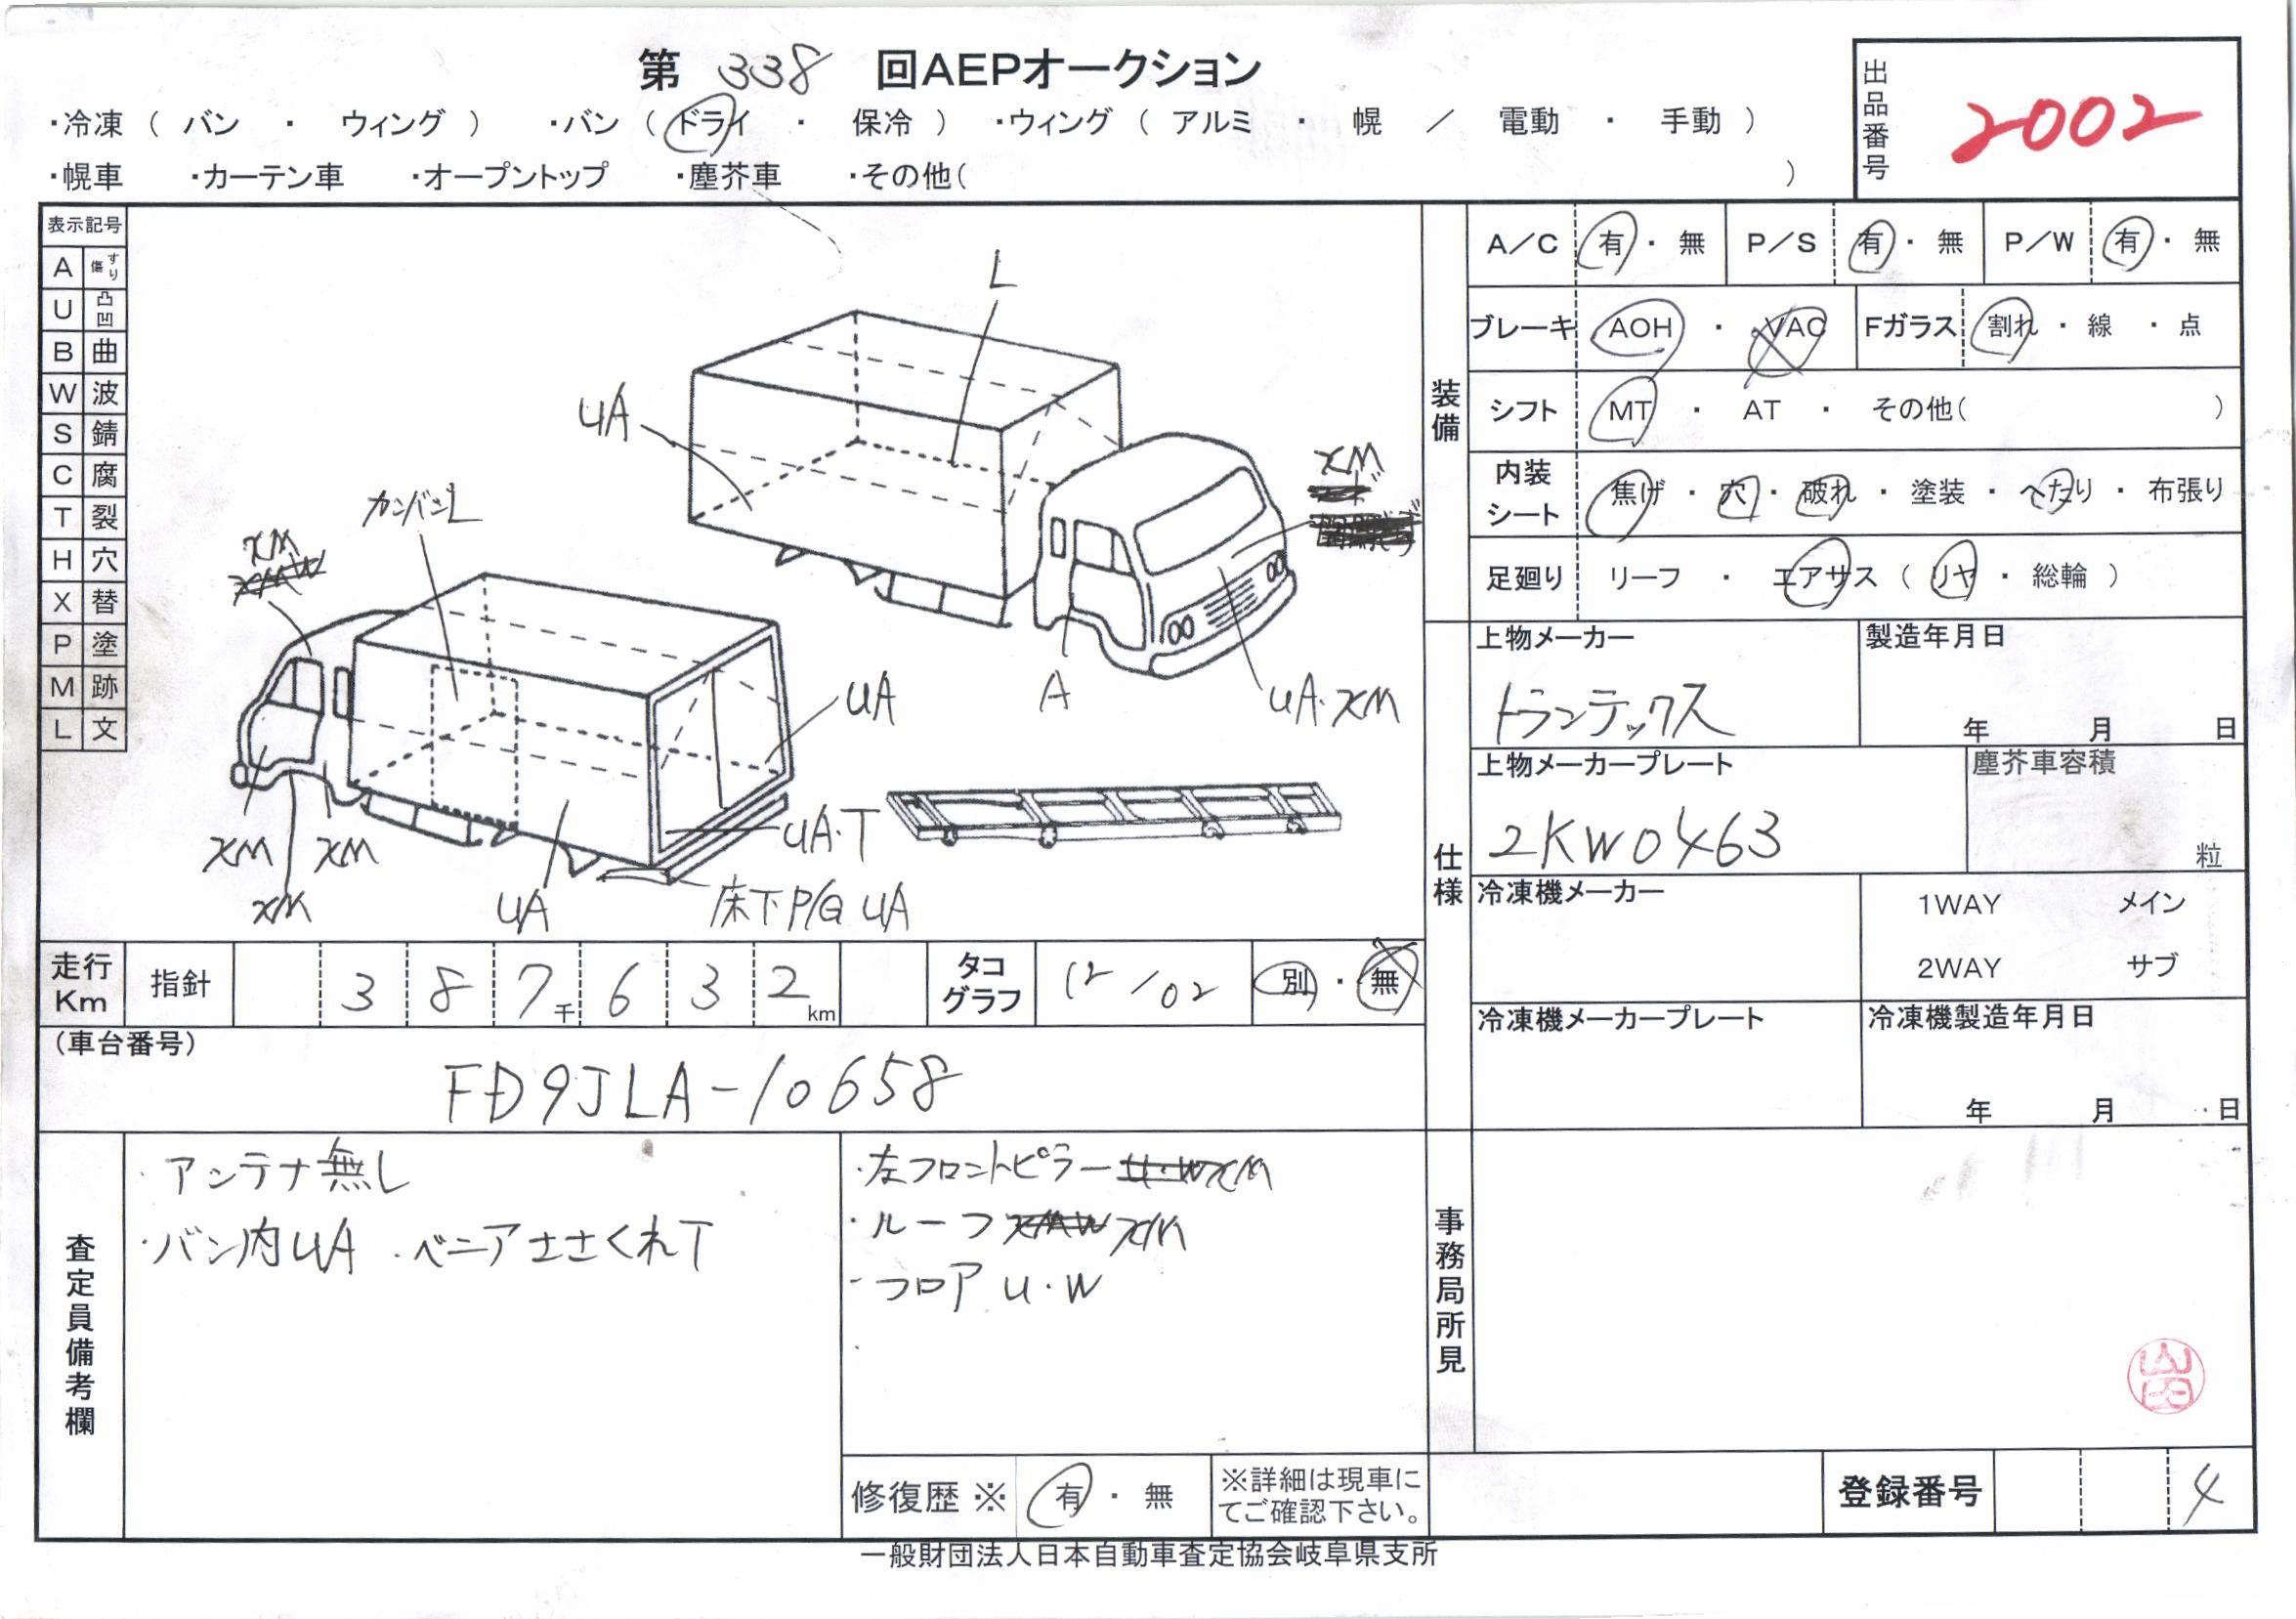 第 338 回AEPオークション
・冷凍（ バン ・ ウィング ） ・バン（ ドライ ・ 保冷 ） ・ウィング（ アルミ ・ 幌 ／ 電動 ・ 手動 ）
・幌車 ・カーテン車 ・オープントップ ・塵芥車 ・その他（ ）
出品番号
2002
表示記号
A すり傷
U 凸凹
B 曲
W 波
S 錆
C 腐
T 裂
H 穴
X 替
P 塗
M 跡
L 文
L
UA
XM
カンバンL
XM
UA
A
UA・XM
UA・T
XM
XM
XM
UA
床下P/G UA
装備
A／C 有・無 P／S 有・無 P／W 有・無
ブレーキ AOH ・ VAC Fガラス 割れ・線・点
シフト MT ・ AT ・ その他（ ）
内装シート 焦げ・穴・破れ・塗装・へたり・布張り
足廻り リーフ ・ エアサス（リヤ・総輪）
仕様
上物メーカー 製造年月日
トランテックス
年 月 日
上物メーカープレート 塵芥車容積
2KW0463
粒
冷凍機メーカー 1WAY メイン
2WAY サブ
冷凍機メーカープレート 冷凍機製造年月日
年 月 日
走行Km 指針 3 8 7千 6 3 2km タコグラフ 12/02 別・無
（車台番号）
FD9JLA-10658
査定員備考欄
・アンテナ無し
・バン内UA ・ベニアささくれT
・左フロントピラー XM
・ルーフ XM
・フロア U・W
事務局所見
修復歴※ 有・無 ※詳細は現車にてご確認下さい。
登録番号 4
一般財団法人日本自動車査定協会岐阜県支所